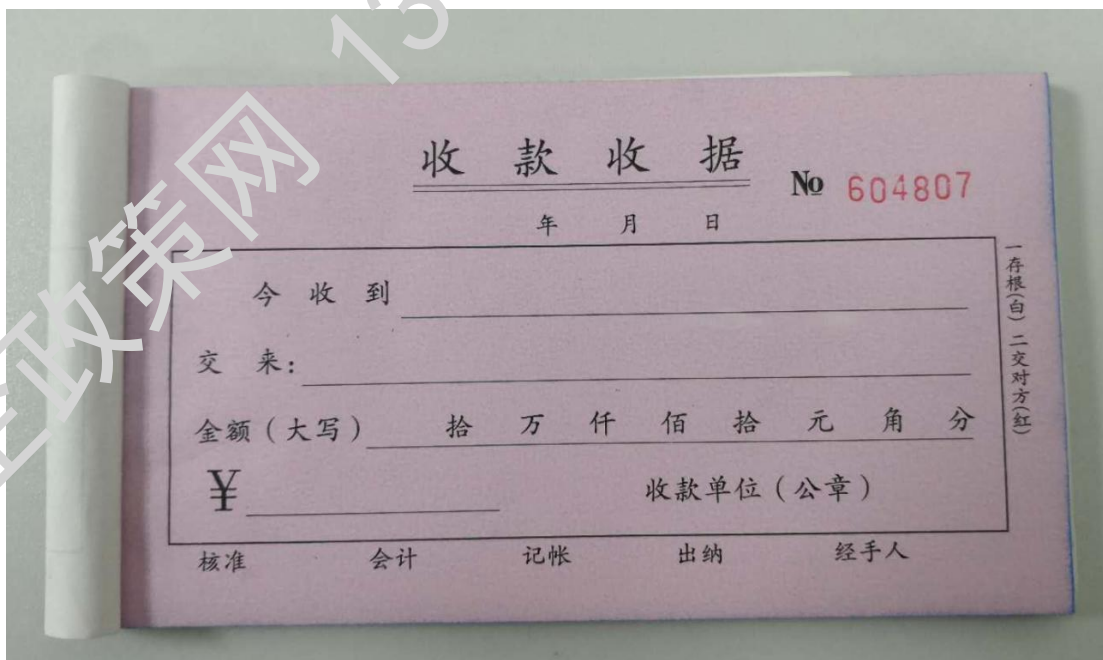 收款收据
№ 604807
年 月 日
今收到
交来:
金额(大写) 拾 万 仟 佰 拾 元 角 分
¥
收款单位(公章)
核准 会计 记帐 出纳 经手人
一存根(白) 二交对方(红)
政策网 13